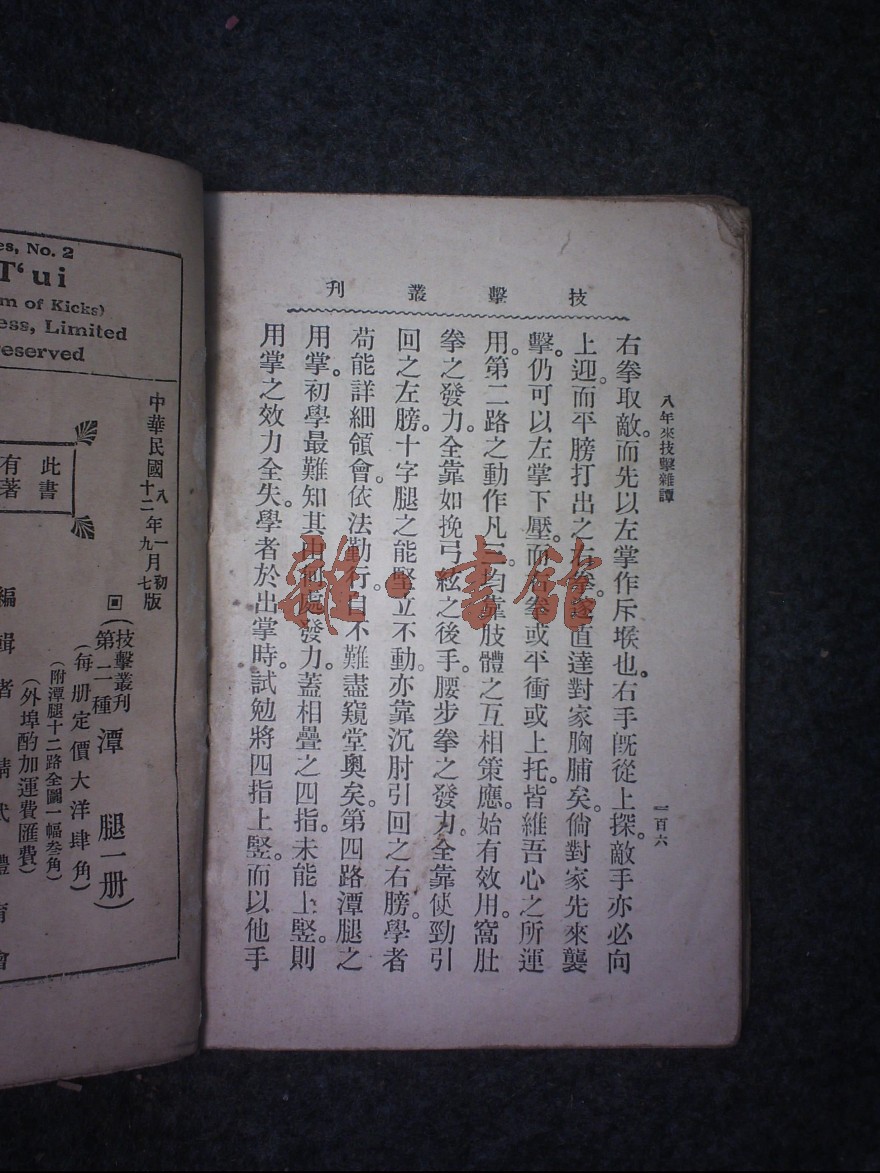 技擊叢刊
八年來技擊雜譚
一百六
右拳取敵。而先以左掌作斥堠也。右手既從上探。敵手亦必向
上迎。而平膀打出之右拳。遂直達對家胸脯矣。倘對家先來襲
擊。仍可以左掌下壓。而右拳或平衝或上托。皆維吾心之所運
用。第二路之動作凡三。均靠肢體之互相策應。始有效用。窩肚
拳之發力。全靠如挽弓絃之後手。腰步拳之發力。全靠使勁引
回之左膀。十字腿之能堅立不動。亦靠沉肘引回之右膀。學者
苟能詳細領會。依法勤行。自不難盡窺堂奧矣。第四路潭腿之
用掌。初學最難知其由何處發力。蓋相疊之四指。未能上竪。則
用掌之效力全失。學者於出掌時。試勉將四指上竪。而以他手
雜·書館
es, No. 2
T‘ui
m of Kicks)
ess, Limited
eserved
此書
有著
中華民國八年一月初版
十二 九 七
回(技擊叢刊第二種潭腿一册)
(每册定價大洋肆角)
(附潭腿十二路全圖一幅叁角)
(外埠酌加運費匯費)
編輯者 精武體育會